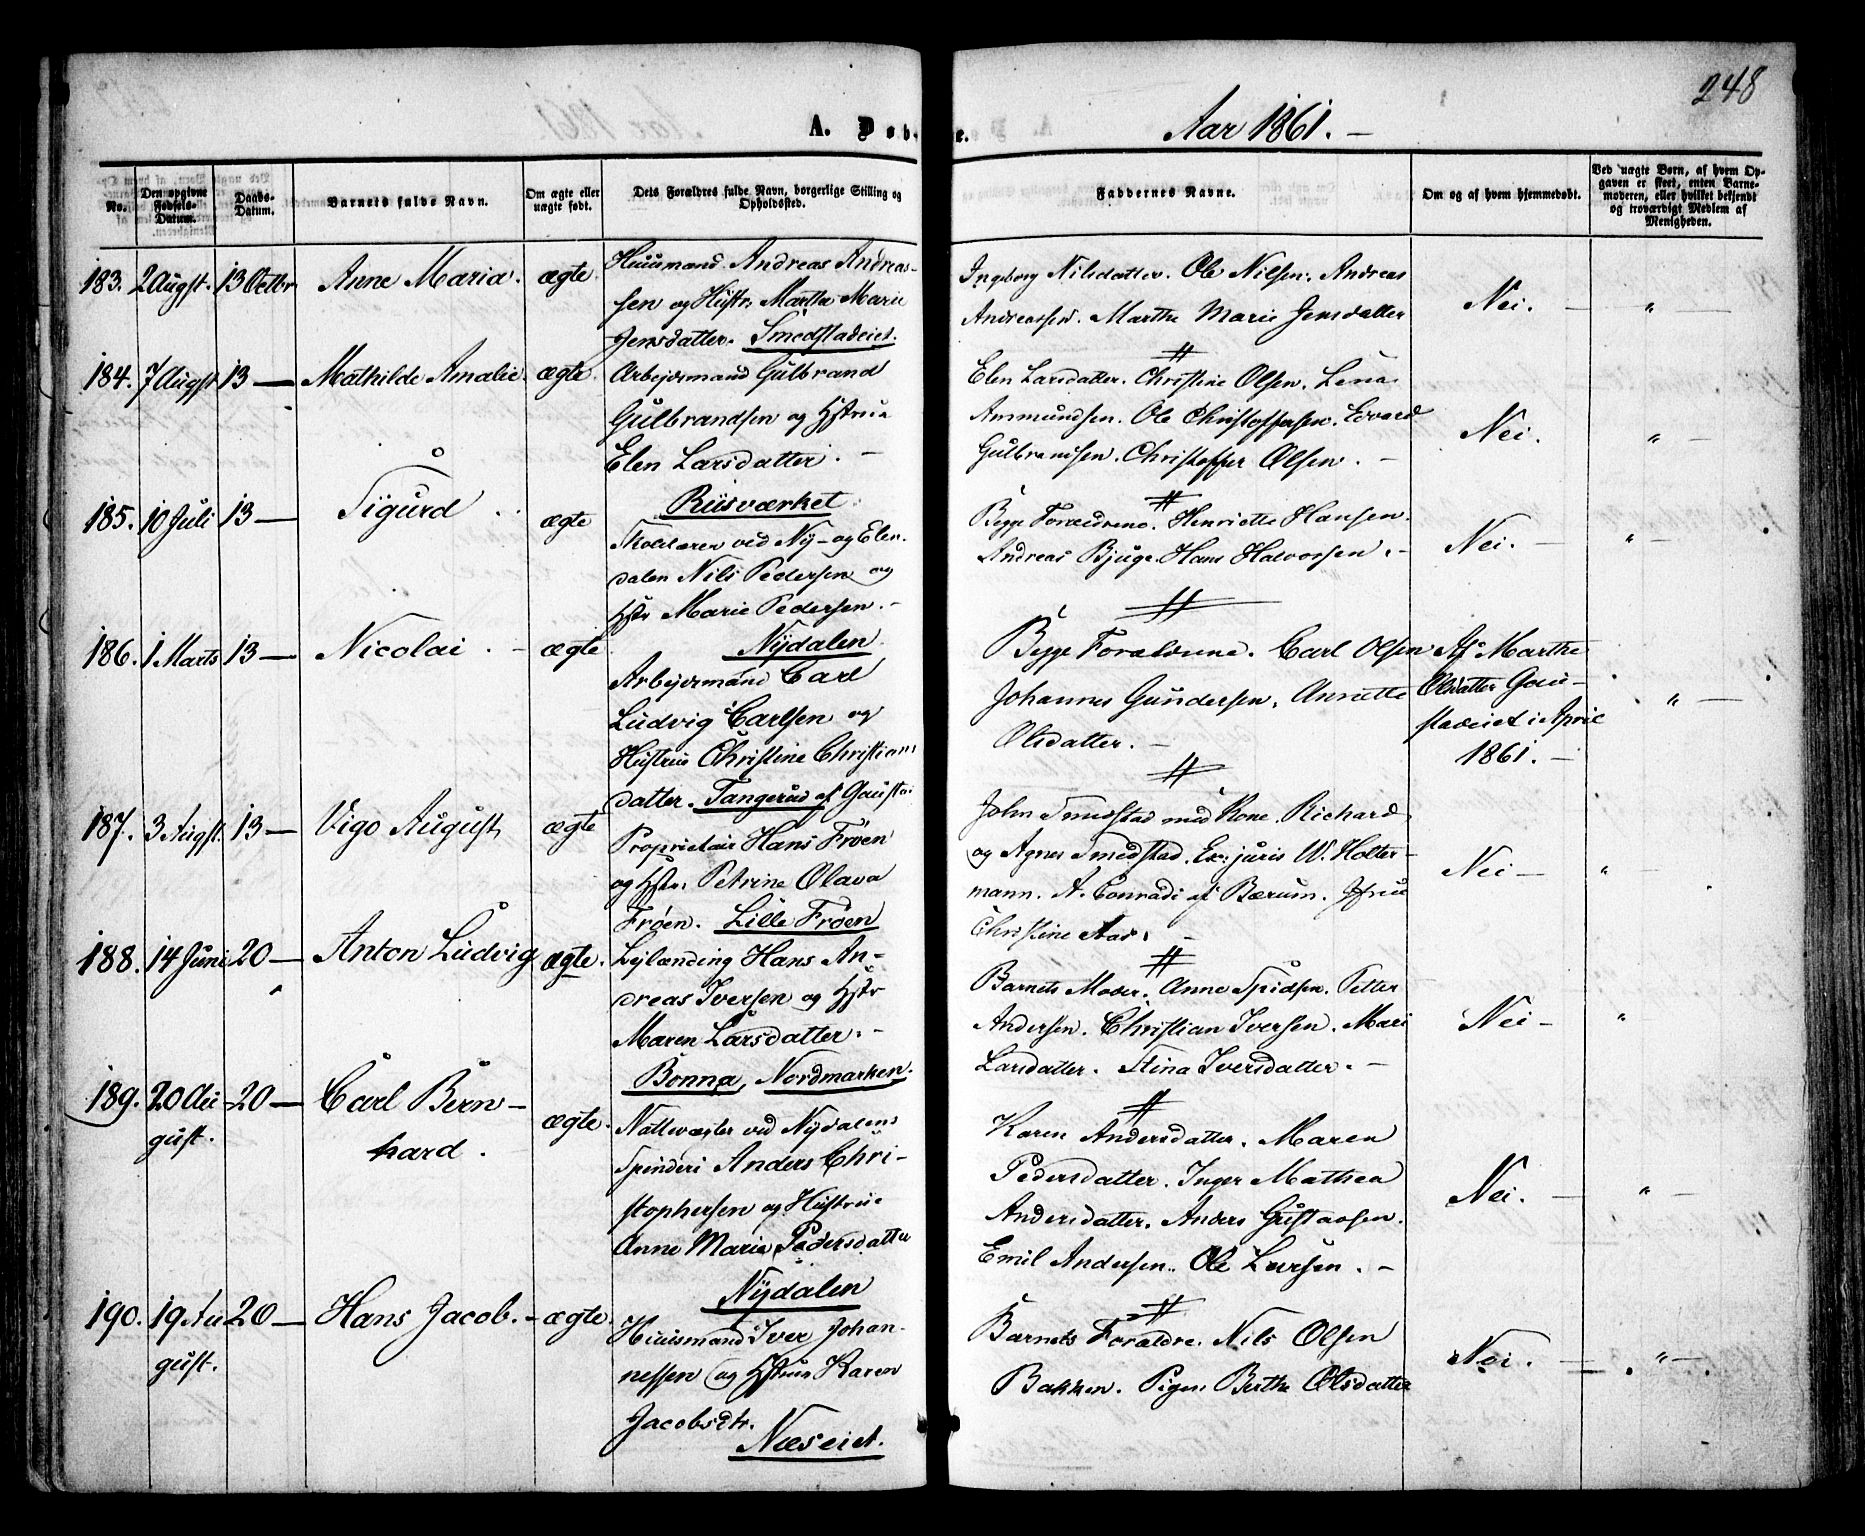 248
A. Døb- e. Aar 1861. —
No.
Den opgivne Fødsels-Datum.
Daabs-Datum.
Barnets fulde Navn.
Om ægte eller uægte født.
Dets Forældres fulde Navn, borgerlige Stilling og Opholdssted.
Faddernes Navne.
Om og af hvem hjemmedøbt.
Ved uægte Børn, af hvem Opgaven er skeet, enten Barnemoderen, eller hvilket bekjendt og troværdigt Medlem af Menigheden.
183. 2 Augst. 13 Octbr Anne Maria. ægte.
Huusmand Andreas Andreas-
sen og Hustr. Martha Marie
Jensdatter. Smedstadeiet.
Ingeborg Nilsdatter. Ole Nilsen. Andreas
Andreassen. Marthe Marie Jensdatter
Nei. — " —
184. 7 Augst 13 — Mathilde Amalie. ægte.
Arbejdermand Gulbrand
Gulbrandsen og Hstrue
Elen Larsdatter. —
Riisværket
Elen Larsdatter. Christine Olsen. Lena
Ammundsen. Ole Christoffersen. Edvard
Gulbrandsen. Christoffer Olsen. —
Nei. " —
185. 10 Juli 13 — Sigurd ægte
Skolelærer ved Ny- og Elen-
dalen Nils Pedersen og
Hstr Marie Pedersen. —
Nydalen
Begge Forældrene. Henriette Hansen.
Andreas Bjuge. Hans Halvorsen. —
Nei. — " —
186. 1 Marts 13 — Nicolai. — ægte
Arbejdermand Carl
Ludvig Carlsen og
Hustrue Christine Christians
datter. Tangerud af Gaustad
Begge Forældrene. Carl Olsen
Johannes Gundersen, Annette
Olsdatter. —
Af Marthe
Olsdatter Gau-
stadeiet i April
1861. —
" —
187. 3 Augst. 13 — Vigo August, ægte
Proprietair Hans Frøen
og Hstr. Petrine Olava
Frøen. Lille Frøen
John Smedstad med Kone. Richard
og Agnes Smedstad. Ex: juris W. Holter-
mann. A. Conradi af Bærum. Jfrue
Christine Aas. —
Nei — " —
188. 14 Juni 20 — Anton Ludvig ægte.
Lejlænding Hans An-
dreas Iversen og Hstr
Maren Larsdatter. —
Bonna, Nordmarken.
Barnets Moder. Anne Spidsen. Petter
Andersen. Christian Iversen. Mari
Larsdatter. Stina Iversdatter. —
Nei — " —
189. 20 Au- 20 — Carl Bern- ægte.
gust. hard.
Nattevægter ved Nydalens
Spinderi Anders Chri-
stophersen og Hustrue
Anne Marie Pedersdatter
Nydalen
Karen Andersdatter. Maren
Pedersdatter. Inger Mathea
Andersdatter. Anders Gustavsen.
Emil Andersen. Ole Larsen. —
Nei. — " —
190. 19 Au 20 — Hans Jacob. — ægte.
gust.
Huusmand Iver Johan-
nessen og Hstrue Karen
Jacobsdtr.
Næseiet.
Barnets Forældre. Nils Olsen
Bakken. Pigen Berthe Olsdatter
Nei. — " —